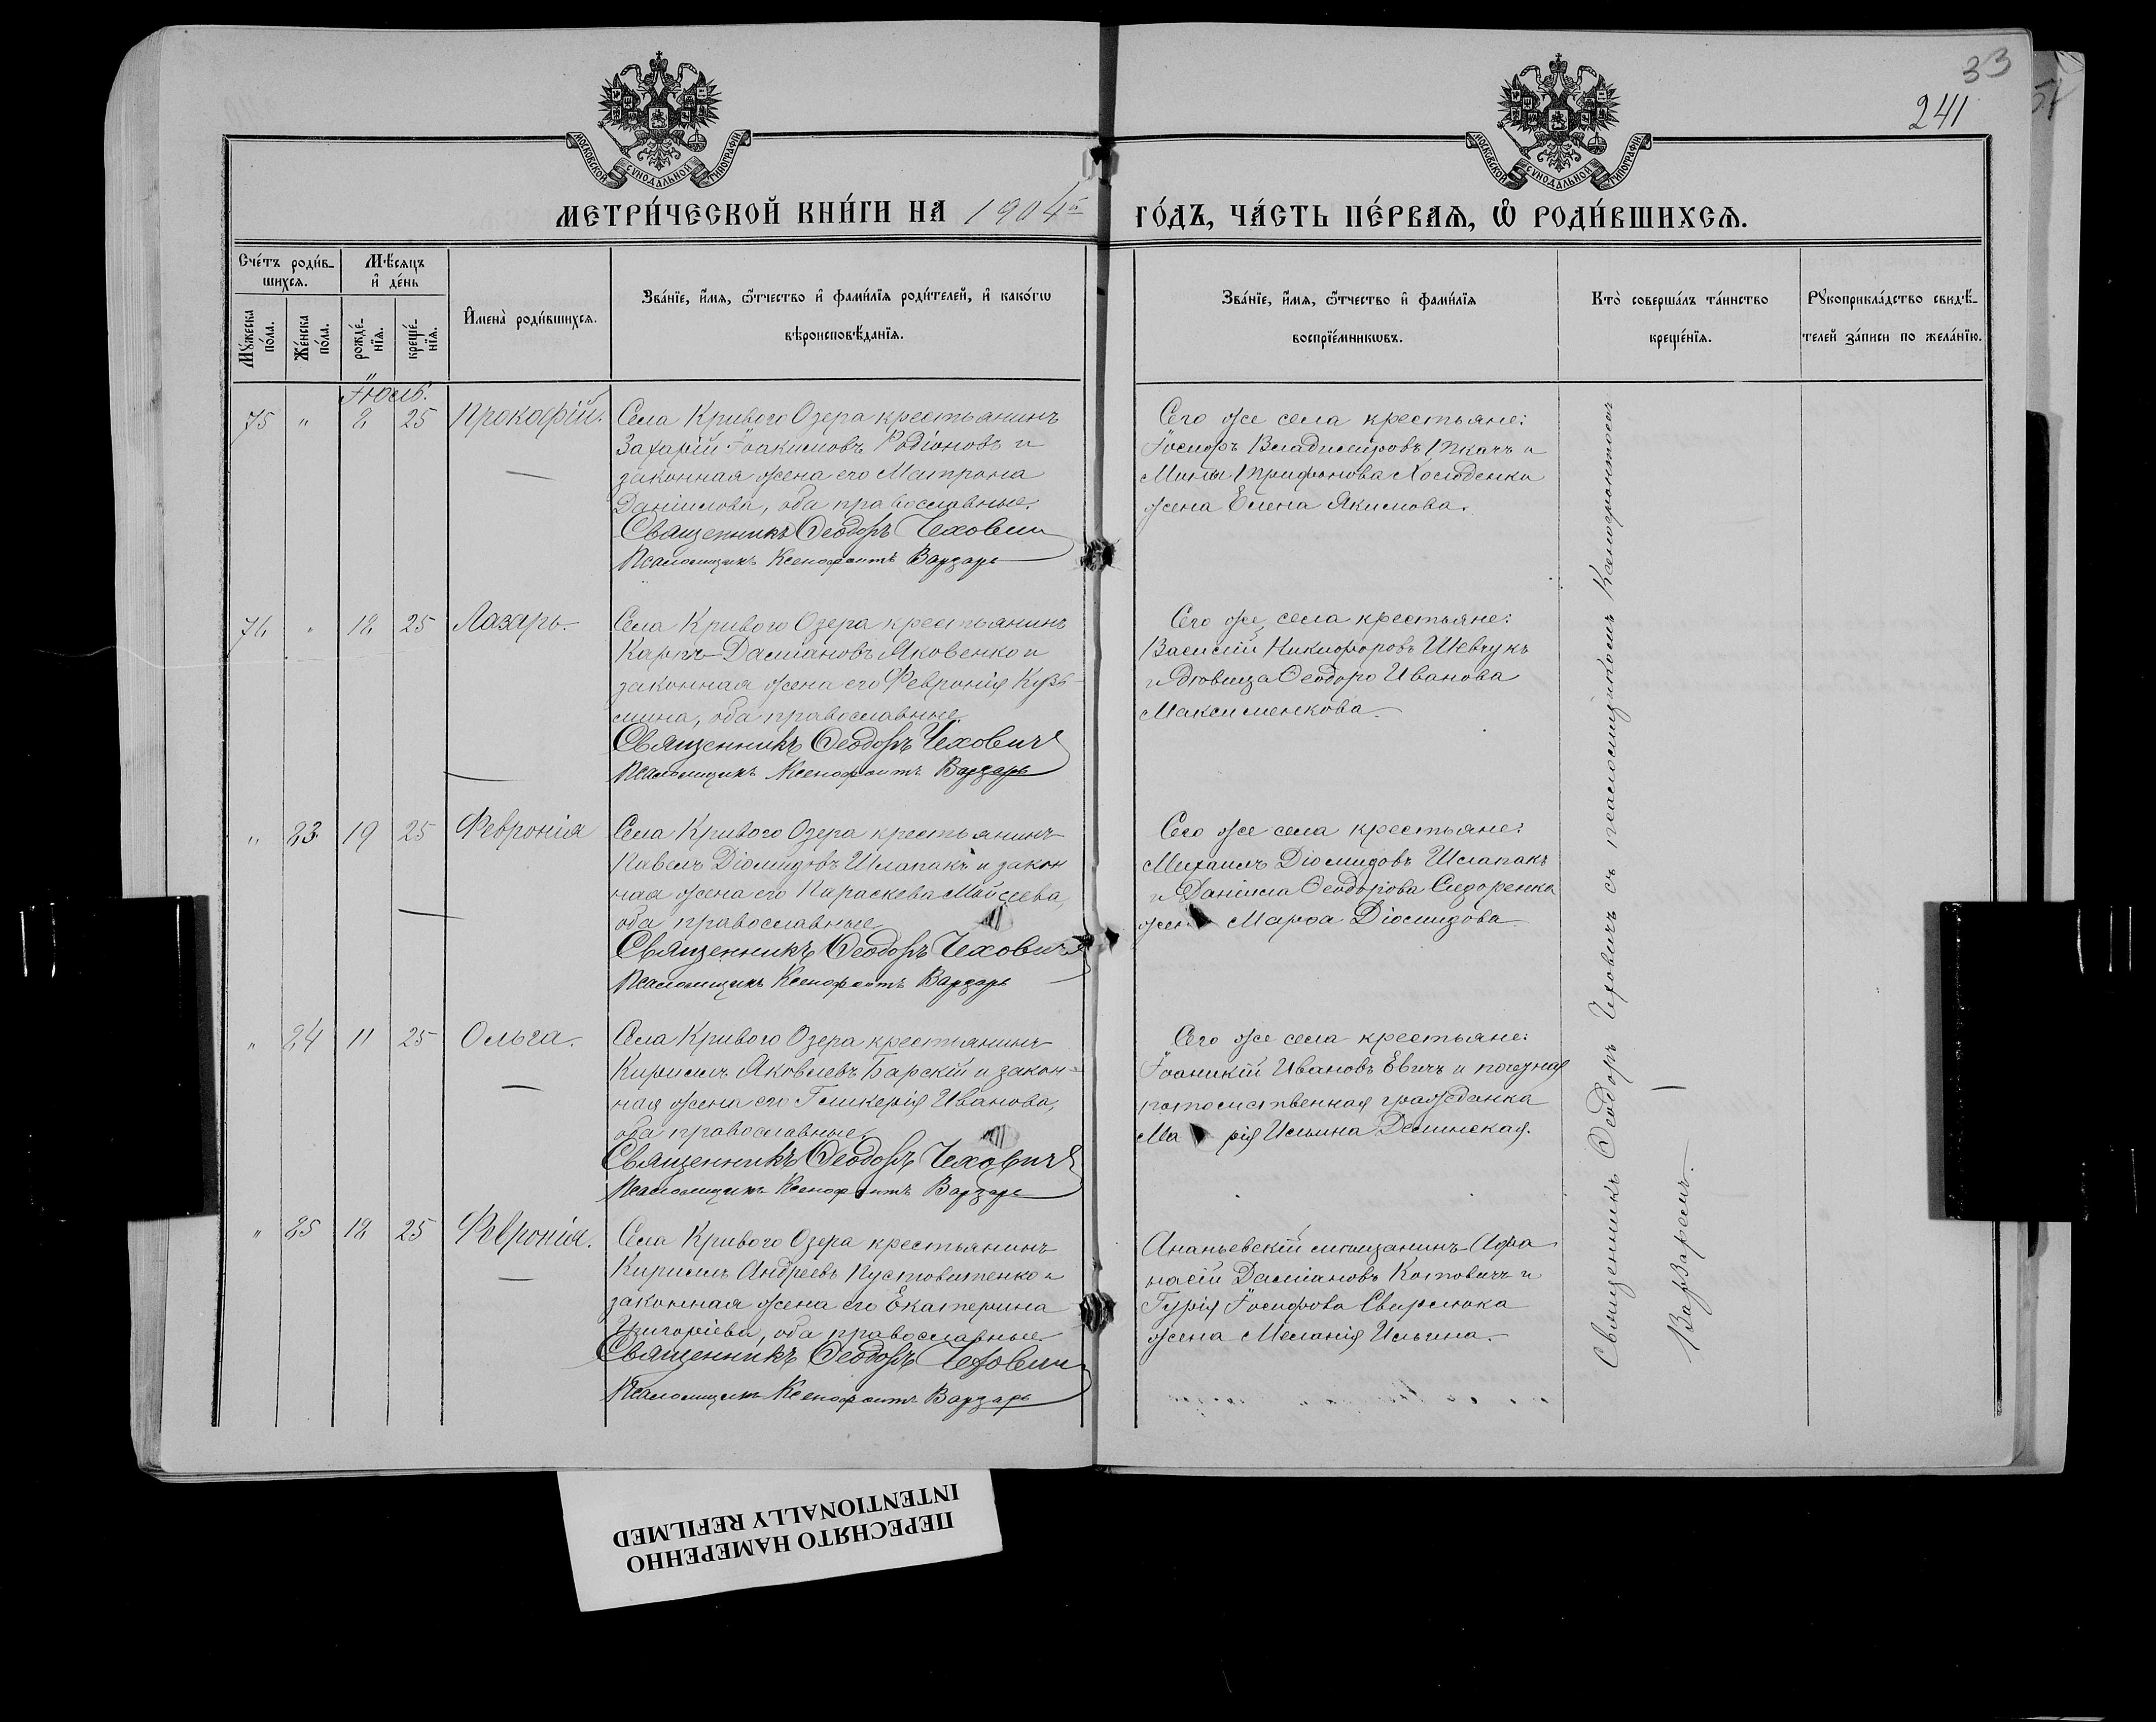 33
241
МОСКОВСКОЙ СѴНОДАЛЬНОЙ ТИПОГРАФІИ
МОСКОВСКОЙ СѴНОДАЛЬНОЙ ТИПОГРАФІИ
МЕТРИ́ЧЕСКОЙ КНИ́ГИ НА 1904й ГО́ДЪ, ЧА́СТЬ ПЕ́РВАЯ, Ѽ РОДИ́ВШИХСЯ.
Сче́тъ роди́вшихся.
Мꙋ́жеска по́ла.
Же́нска по́ла.
Мѣ́сяцъ и҆ де́нь
рожде́нїя.
креще́нїя.
И҆мена̀ роди́вшихся.
Зва́нїе, и҆́мя, ѻ҆́тчество и҆ фами́лїя роди́телей, и҆ како́гѡ
вѣроисповѣ́данїя.
Зва́нїе, и҆́мя, ѻ҆́тчество и҆ фами́лїя
воспрїе́мникѡвъ.
Кто̀ соверша́лъ та́инство
креще́нїя.
Рꙋкоприкла́дство свидѣ́-
телей за́писи по жела́нїю.
75 " 8 25 Прокофій.
Села Кривого Озера крестьянинъ
Захарій Іоакимовъ Родіоновъ и
законная жена его Матрона
Даніилова, оба православные.
Священникъ Ѳеодоръ Чехович
Псаломщикъ Ксенофонтъ Варзарь
Сего же села крестьяне:
Іосифъ Владиміровъ Ткачъ и
Мины Трифонова Холоденки
жена Елена Якимова.
76 " 18 25 Лазарь.
Села Кривого Озера крестьянинъ
Карпъ Даміановъ Яковенко и
законная жена его Февронія Кузь-
мина, оба православные.
Священникъ Ѳеодоръ Чеховичъ
Псаломщикъ Ксенофонтъ Варзарь
Сего же села крестьяне:
Василій Никифоровъ Шевчукъ
и дѣвица Ѳеодора Иванова
Максименкова.
" 83 19 25 Февронія
Села Кривого Озера крестьянинъ
Павелъ Діомидовъ Шлапакъ и закон
ная жена его Параскева Мойсеева,
оба православные.
Священникъ Ѳеодоръ Чеховичъ
Псаломщикъ Ксенофонтъ Варзарь
Сего же села крестьяне:
Михаилъ Діомидовъ Шлапакъ
и Даніила Ѳеодорова Сидоренка
жена Марѳа Діомидова
" 84 11 25 Ольга.
Села Кривого Озера крестьянинъ
Кириллъ Яковлевъ Барскій и закон-
ная жена его Гликерія Иванова,
оба православные.
Священникъ Ѳеодоръ Чеховичъ
Псаломщикъ Ксенофонтъ Варзарь
Сего же села крестьяне:
Іоаникій Ивановъ Евичъ и почезная
потомственная гражданка
Марія Ильина Делинская.
" 85 18 25 Февронія.
Села Кривого Озера крестьянинъ
Кириллъ Андреевъ Пустовитенко и
законная жена его Екатерина
Григоріева, оба православные.
Священникъ Ѳеодоръ Чехович
Псаломщикъ Ксенофонтъ Варзарь
Ананьевскій мѣщанинъ Аѳа
насій Даміановъ Котовичъ и
Гурія Іосифова Свирлюка
жена Меланія Ильина.
Священникъ Ѳеодоръ Чеховичъ съ псаломщикомъ Ксенофонтомъ
Варзаремъ.
ПЕРЕСНЯТО НАМЕРЕННО
INTENTIONALLY REFILMED